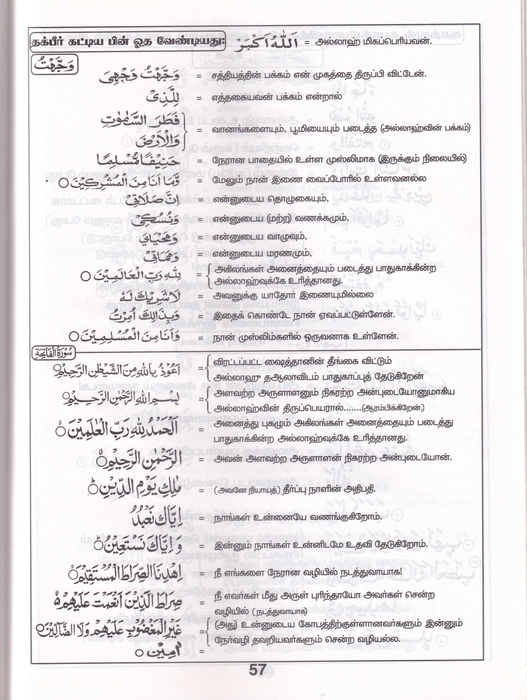 தக்பீர் கட்டிய பின் ஓத வேண்டியது: اَللّٰهُ اَكْبَرْ = அல்லாஹ் மிகப்பெரியவன்.
وَجَّهْتُ
وَجَّهْتُ وَجْهِىَ = சத்தியத்தின் பக்கம் என் முகத்தை திருப்பி விட்டேன்.
لِلَّذِىْ = எத்தகையவன் பக்கம் என்றால்
فَطَرَ السَّمٰوٰتِ
وَالْاَرْضَ = வானங்களையும், பூமியையும் படைத்த (அல்லாஹ்வின் பக்கம்)
حَنِيْفًا مُّسْلِمًا = நேரான பாதையில் உள்ள முஸ்லிமாக (இருக்கும் நிலையில்)
وَّمَا اَنَا مِنَ الْمُشْرِكِيْنَ = மேலும் நான் இணை வைப்போரில் உள்ளவனல்ல
اِنَّ صَلَاتِىْ = என்னுடைய தொழுகையும்,
وَنُسُكِىْ = என்னுடைய (மற்ற) வணக்கமும்,
وَمَحْيَاىَ = என்னுடைய வாழ்வும்,
وَمَمَاتِىْ = என்னுடைய மரணமும்,
لِلّٰهِ رَبِّ الْعَالَمِيْنَ = அகிலங்கள் அனைத்தையும் படைத்து பாதுகாக்கின்ற
அல்லாஹ்வுக்கே உரித்தானது.
لَا شَرِيْكَ لَهُ = அவனுக்கு யாதோர் இணையுமில்லை
وَبِذٰلِكَ اُمِرْتُ = இதைக் கொண்டே நான் ஏவப்பட்டுள்ளேன்.
وَاَنَا مِنَ الْمُسْلِمِيْنَ = நான் முஸ்லிம்களில் ஒருவனாக உள்ளேன்.
سُوْرَةُ الْفَاتِحَة
اَعُوْذُ بِاللهِ مِنَ الشَّيْطٰنِ الرَّجِيْمِ = விரட்டப்பட்ட ஷைத்தானின் தீங்கை விட்டும்
அல்லாஹு தஆலாவிடம் பாதுகாப்புத் தேடுகிறேன்
بِسْمِ اللهِ الرَّحْمٰنِ الرَّحِيْمِ = அளவற்ற அருளாளனும் நிகரற்ற அன்புடையோனுமாகிய
அல்லாஹ்வின் திருப்பெயரால்.......(ஆரம்பிக்கிறேன்.)
اَلْحَمْدُ لِلّٰهِ رَبِّ الْعٰلَمِيْنَ = அனைத்து புகழும் அகிலங்கள் அனைத்தையும் படைத்து
பாதுகாக்கின்ற அல்லாஹ்வுக்கே உரித்தானது.
الرَّحْمٰنِ الرَّحِيْمِ = அவன் அளவற்ற அருளாளன் நிகரற்ற அன்புடையோன்.
مٰلِكِ يَوْمِ الدِّيْنِ = (அவனே நியாயத்) தீர்ப்பு நாளின் அதிபதி.
اِيَّاكَ نَعْبُدُ = நாங்கள் உன்னையே வணங்குகிறோம்.
وَاِيَّاكَ نَسْتَعِيْنُ = இன்னும் நாங்கள் உன்னிடமே உதவி தேடுகிறோம்.
اِهْدِنَا الصِّرَاطَ الْمُسْتَقِيْمَ = நீ எங்களை நேரான வழியில் நடத்துவாயாக!
صِرَاطَ الَّذِيْنَ اَنْعَمْتَ عَلَيْهِمْ = நீ எவர்கள் மீது அருள் புரிந்தாயோ அவர்கள் சென்ற
வழியில் (நடத்துவாயாக)
غَيْرِ الْمَغْضُوْبِ عَلَيْهِمْ وَلَا الضَّالِّيْنَ = (அது) உன்னுடைய கோபத்திற்குள்ளானவர்களும் இன்னும்
நேர்வழி தவறியவர்களும் சென்ற வழியல்ல.
اٰمِيْنَ =
57